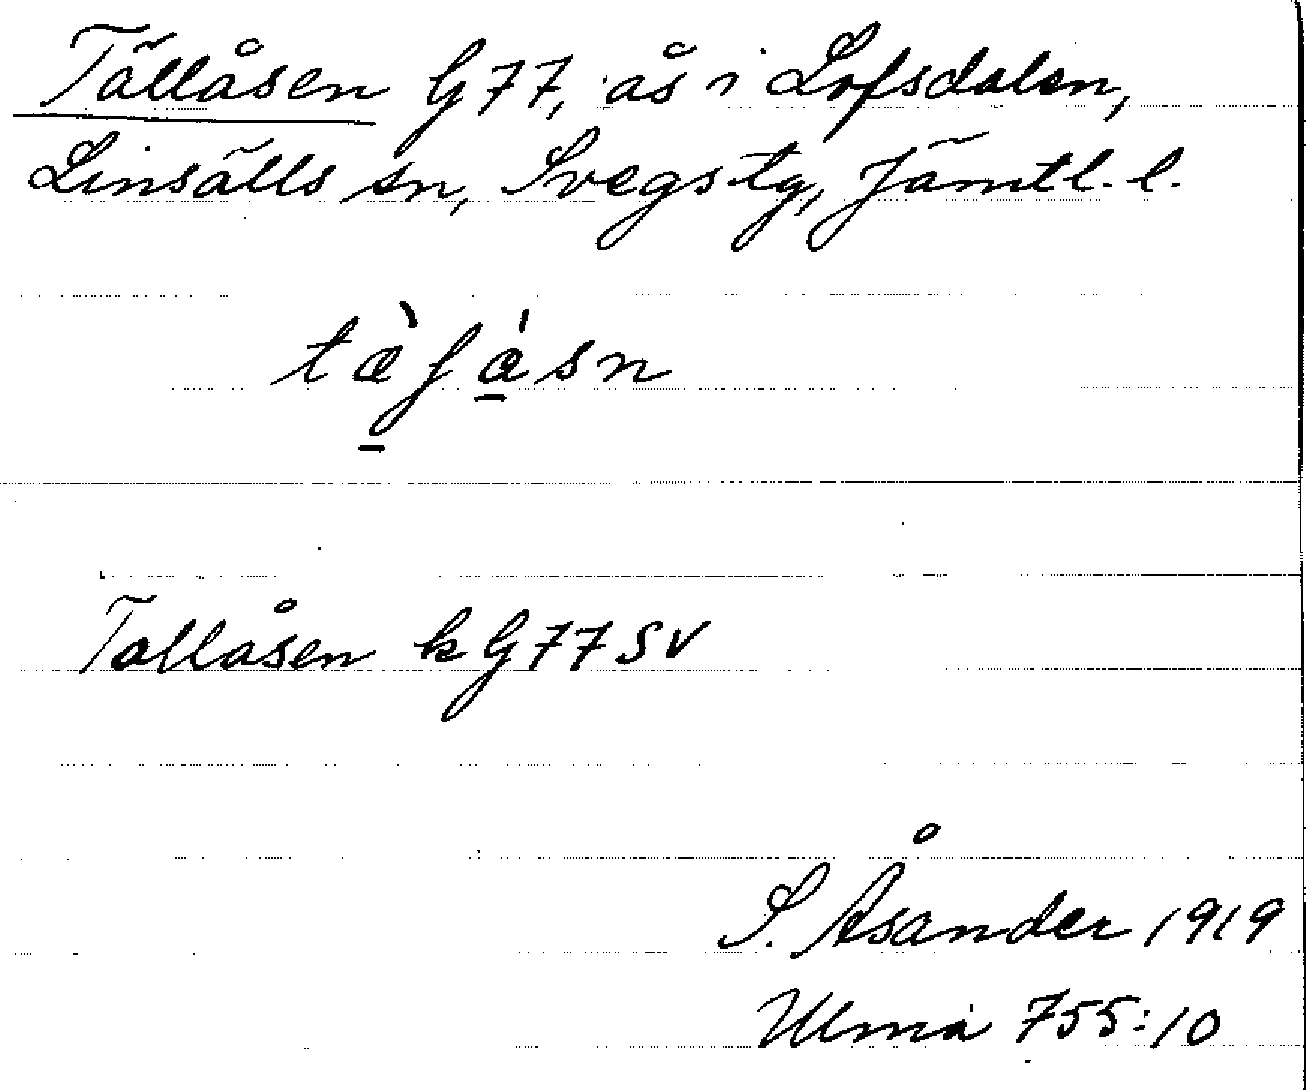 Tällåsen G77, ås i Lofsdalen,
Linsälls sn, Svegs tg, Jämtl. l.
Tallåsen k G77 SV
S. Åsander 1919
Ulma 755:10